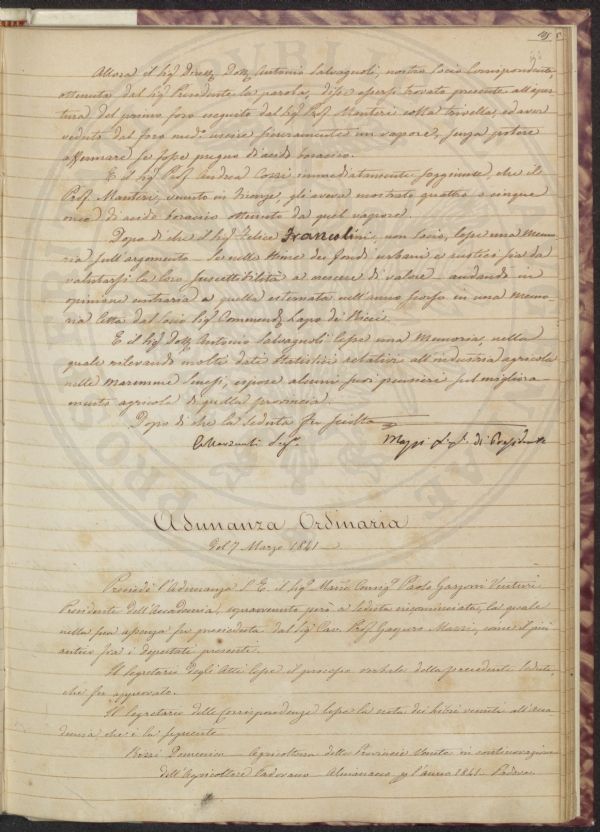 Allora il Sigr Dirett. Dott. Antonio Salvagnoli, nostro Socio Corrispondente,
ottenuta dal Sigr Presidente la parola, disse essersi trovato presente all'aper-
tura del primo foro eseguito dal Sigr Prof. Manteri colla trivella, ed aver
veduto dal foro medo uscire puramente un vapore, senza potere
affermare se fosse pregno di acido boracico.
E il Sigr Prof. Andrea Cozzi immediatamente soggiunse, che il
Prof. Manteri, venuto in Firenze, gli aveva mostrato quattro o cinque
once di acido boracico ottenuto da quel vapore.
Dopo di che il Sigr Felice Francolini, non socio, lesse una Memo-
ria sull'argomento - Se nelle stime dei fondi urbani e rustici sia da
valutarsi la loro suscettibilità a crescere di valore - andando in
opinione contraria a quella esternata nell'anno scorso in una Memo-
ria letta dal Socio Sigr Commend. Lapo de' Ricci.
E il Sigr Dott. Antonio Salvagnoli lesse una Memoria, nella
quale rilevando molti dati statistici relativi all'industria agricola
nelle maremme Senesi, espose alcuni suoi pensieri sul migliora-
mento agricola di quella provincia.
Dopo di che la seduta fu sciolta
di Presidente
Adunanza Ordinaria
Del 7 Marzo 1841
Presiedè l'Adunanza S. E. il Sigr March. Consigr Paolo Garzoni Venturi
Presidente dell'Accademia, sopravvenuto però a seduta incominciata, la quale
nella sua assenza fu presieduta dal Sigr Cav. Prof. Gaspero Mazzi, come il più
antico fra i deputati presente.
Il Segretario degli Atti lesse il processo verbale della precedente seduta,
che fu approvato.
Il Segretario delle Corrispondenze lesse la nota dei libri venuti all'Acca-
demia che è la seguente
Rizzi Domenico - Agricoltura delle Provincie Venete in continuazione
dell'Agricoltore Padovano - Almanacco pr l'anno 1841 - Padova